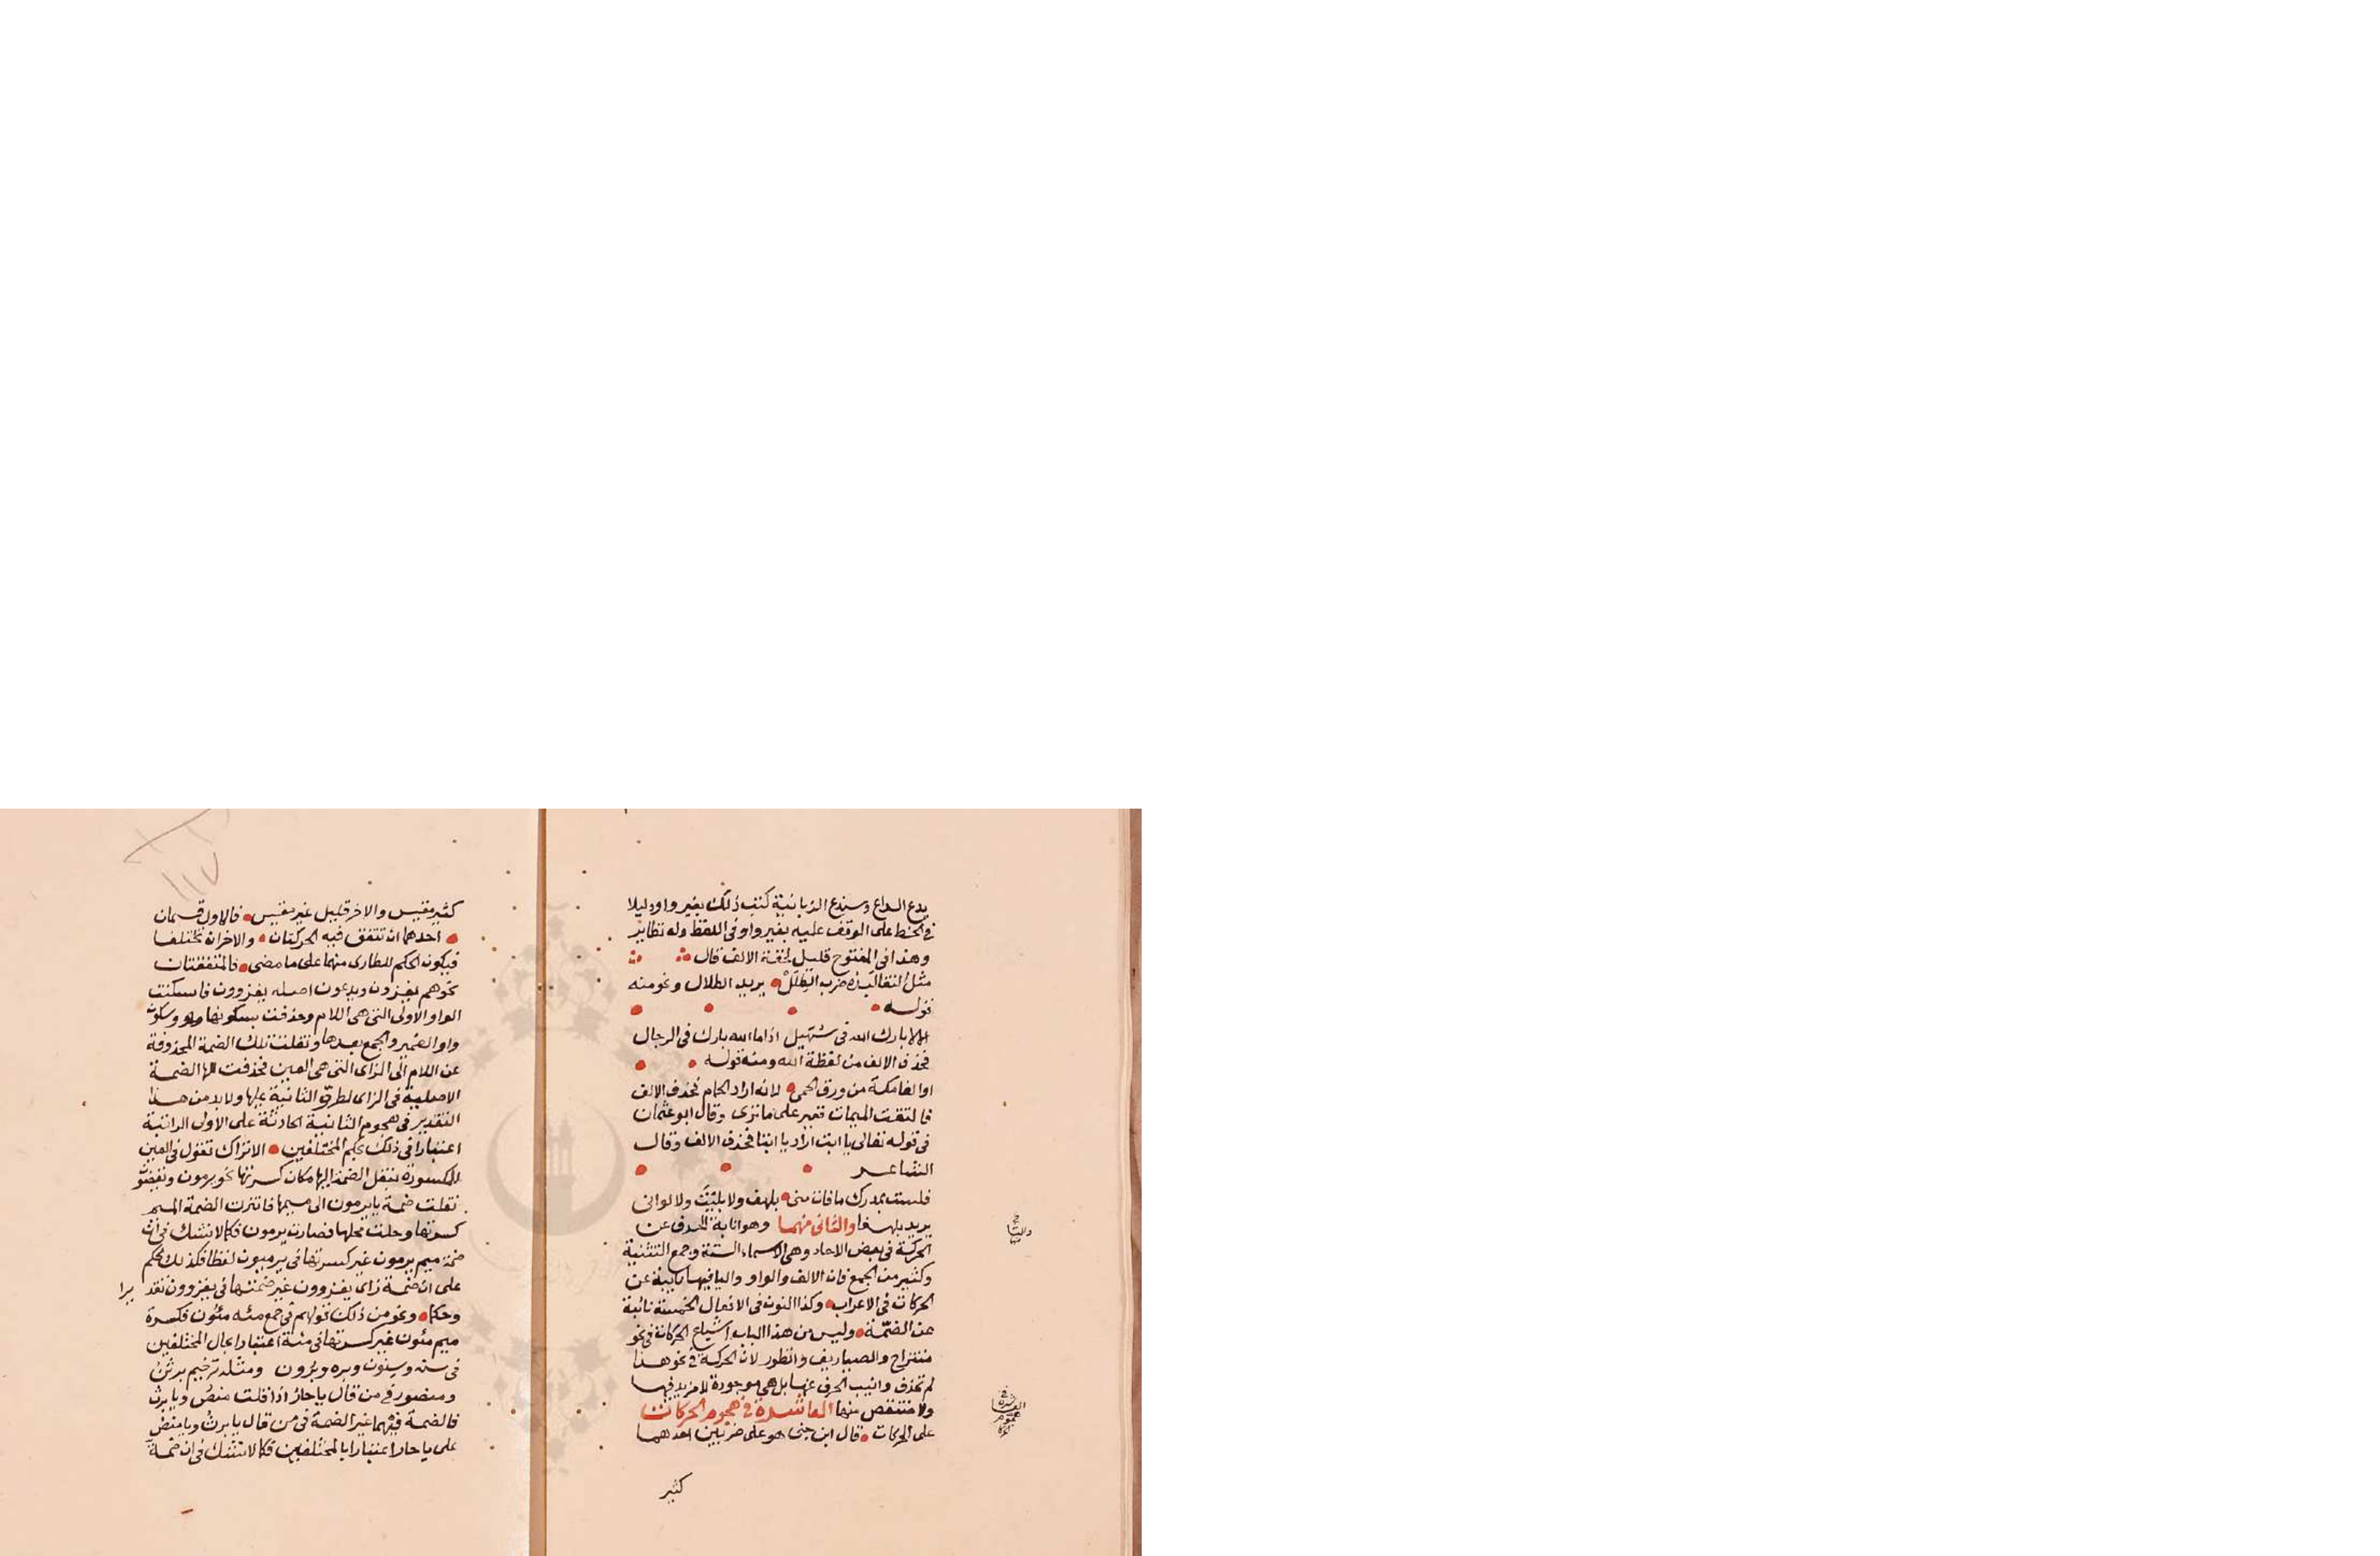 يدع الداع وسندع الزبانية كتب ذلك بغير واو دليلا
في الخط على الوقف عليه بغير واو في اللفظ وله نظاير
وهذا في المفتوح قليل لخفة الالف قال
مثل النقا لبده ضرب الطلل يريد الطلال ونحو منه
قوله
الا لا بارك الله في سهيل اذا ما الله بارك في الرجال
فحذف الالف من لفظة الله ومنه قوله
اوالفا مكة من ورق الحمى لانه اراد الحمام فحذف الالف
فالتقت الميمات فغير على ما ترى وقال ابو عثمان
في قوله تعالى يا ابت اراد يا ابتا فحذف الالف وقال
الشاعر
فلست بمدرك ما فات منى بلهف ولا بليت ولا لوانى
يريد بلهفا والثانى منهما وهو انابة الحرف عن
الحركة في بعض الاحاد وهى الاسماء الستة وجمع التثنية
وكثير من الجمع فان الالف والواو واليا فيها نايبة عن
الحركات في الاعراب وكذا النون في الافعال الخمسة نائبة
عن الضمة وليس من هذا الباب اشباع الحركات في نحو
منتزاح والصياريف وانظور لان الحركة في نحو هذا
لم تحذف وانيب الحرف عنها بل هى موجودة لا مزيد فيها
ولا منتقص منها العاشرة في هجوم الحركات
على الحركات قال ابن جنى هو على ضربين احدهما
كثير
كثير مقيس والاخر قليل غير مقيس فالاول قسمان
احدهما ان تتفق فيه الحركتان والاخر ان يختلفا
فيكون الحكم للطارى منهما على ما مضى فالمتفقتان
نحو هم يغزون ويدعون اصله يغزوون فاسكنت
الواو الاولى التى هى اللام وحذفت بسكونها وسكون
واو الضمير والجمع بعدها ونقلت تلك الضمة المحذوفة
عن اللام الى الزاى التى هى العين فحذفت لها الضمة
الاصلية في الزاى لطرو الثانية عليها ولا بد من هذا
التقدير في هجوم الثانية الحادثة على الاولى الراتبة
اعتبارا في ذلك بحكم المختلفين الا تراك تقول في العين
المكسورة بنقل الضمة اليها مكان كسرتها نحو يرمون ويقضون
نقلت ضمة يا يرمون الى ميمها فابتزت الضمة الميم
كسرتها وحلت محلها فصارت يرمون فكما لا نشك في ان
ضمة ميم يرمون غير كسرتها في يرميون لفظا فكذلك نحكم
على ان ضمة زاى يغزوون غير ضمتها في يغزوون تقديرا
وحكما ونحو من ذلك قولهم في جمع مئه مئون فكسرة
ميم مئون غير كسرتها في مئة اعتبارا بحال المختلفين
في سنه وسنون وبره وبرون ومثله ترخيم برثن
ومنصور في من قال يا حار اذا قلت يا منص ويا برث
فالضمة فيهما غير الضمة في من قال يا برث ويا منص
على يا حار اعتبارا بالمختلفين فكما لا نشك في ان ضمة